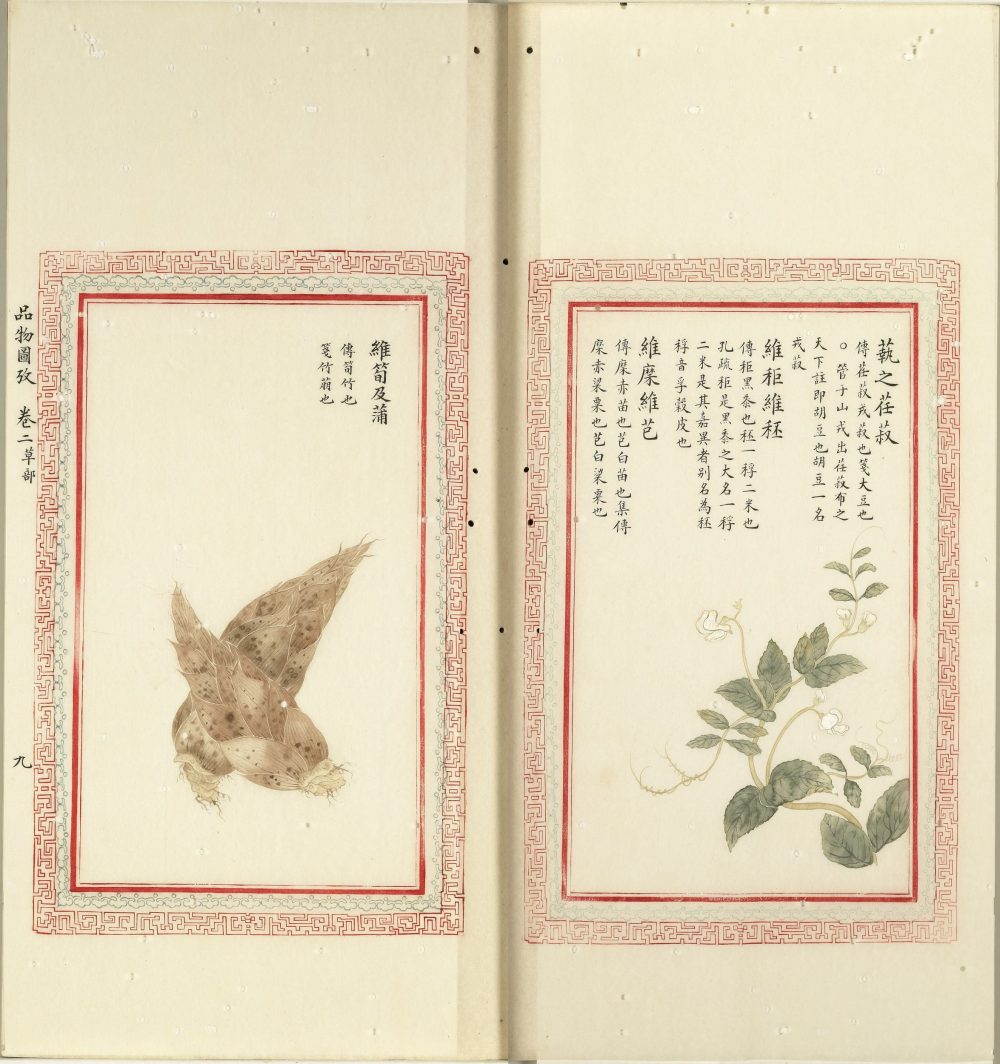 蓺之荏菽
傳荏菽戎菽也箋大豆也
○管子山戎出荏菽布之
天下註即胡豆也胡豆一名
戎菽
維秬維秠
傳秬黑黍也秠一稃二米也
孔疏秬是黑黍之大名一稃
二米是其嘉異者别名為秠
稃音孚穀皮也
維穈維芑
傳穈赤苗也芑白苗也集傳
穈赤粱粟也芑白粱粟也
維筍及蒲
傳筍竹也
箋竹萌也
品物圖攷 卷二草部
九